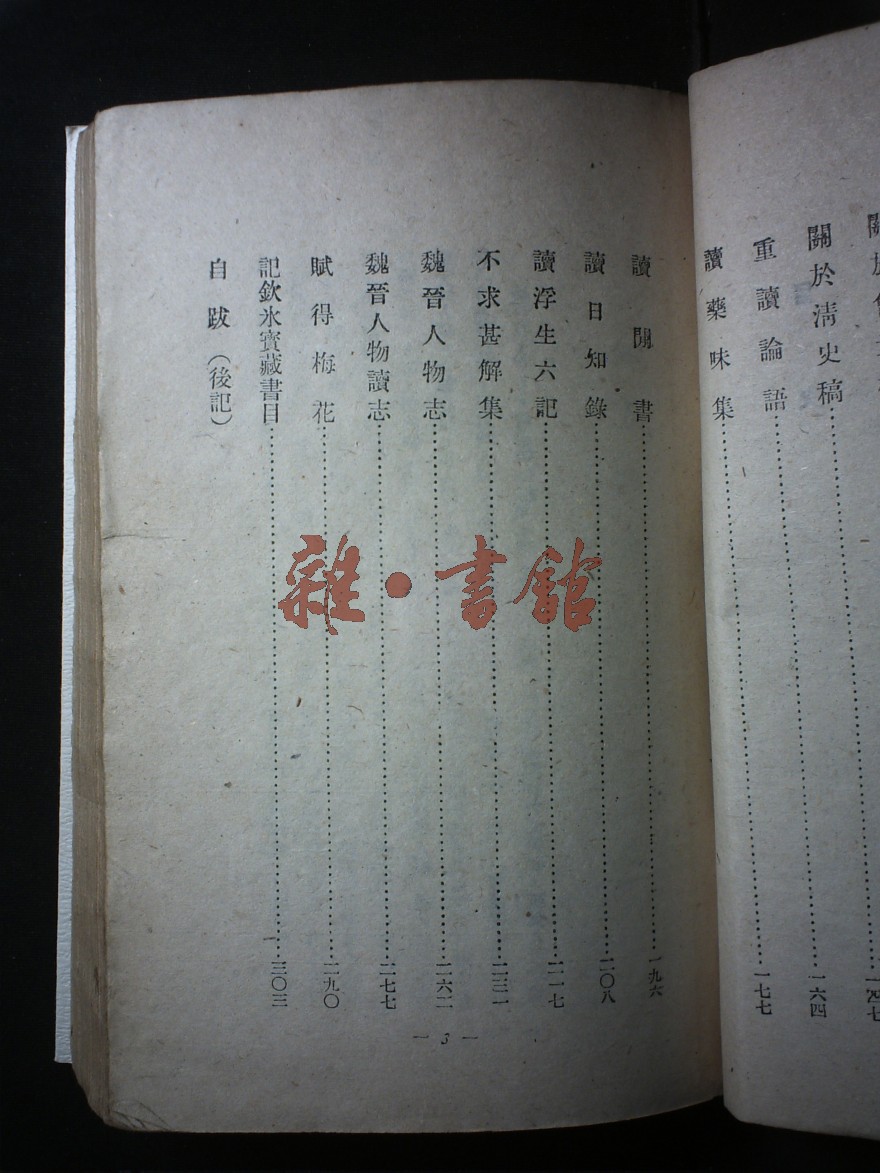 關於清史稿……一四七
重讀論語……一六四
讀藥味集……一七七
讀閒書……一九六
讀日知錄……二〇八
讀浮生六記……二一七
不求甚解集……二三一
魏晉人物志……二六二
魏晉人物讀志……二七七
賦得梅花……二九〇
記欽氷寶藏書目……三〇三
自跋（後記）
— 3 —
雜·書館